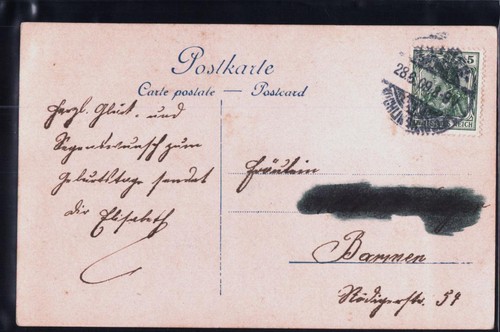 Postkarte
Carte postale — Postcard
Herzl. Glück- und
Segenswunsch zum
Geburtstage sendet
dir Elisabeth
Fräulein
Barmen
Rödigerstr. 59
5
REICH
28.8.09.